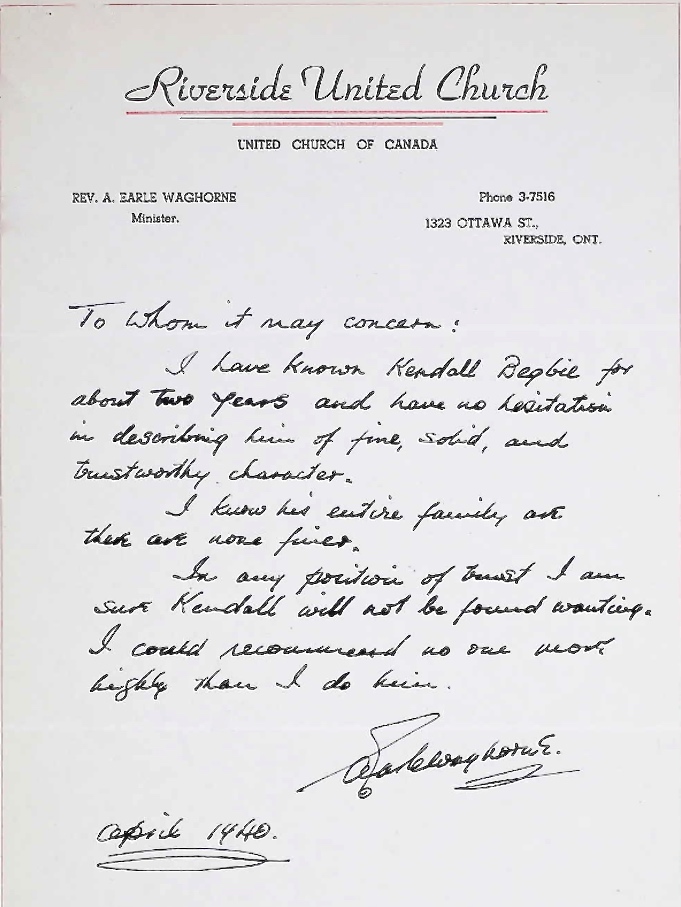 Riverside United Church
UNITED CHURCH OF CANADA
REV. A. EARLE WAGHORNE
Minister.
Phone 3-7516
1323 OTTAWA ST.,
RIVERSIDE, ONT.
To Whom it may concern:
I have known Kendall Begbie for
about two years and have no hesitation
in describing him of fine, solid, and
trustworthy character.
I know his entire family and
there are none finer.
In any position of trust I am
sure Kendall will not be found wanting.
I could recommend no one more
highly than I do him.
A Earle Waghorne.
April 1940.